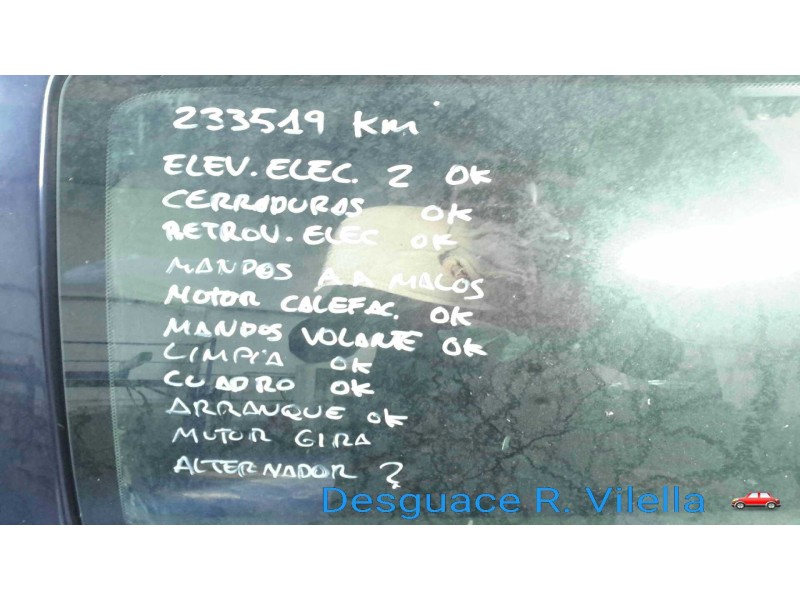 233519 Km
ELEV. ELEC. 2 OK
CERRADURAS OK
RETROV. ELEC OK
MANDOS A A MALOS
MOTOR CALEFAC. OK
MANDOS VOLANTE OK
LIMPIA OK
CUADRO OK
ARRANQUE OK
MOTOR GIRA
ALTERNADOR ?
Desguace R. Vilella